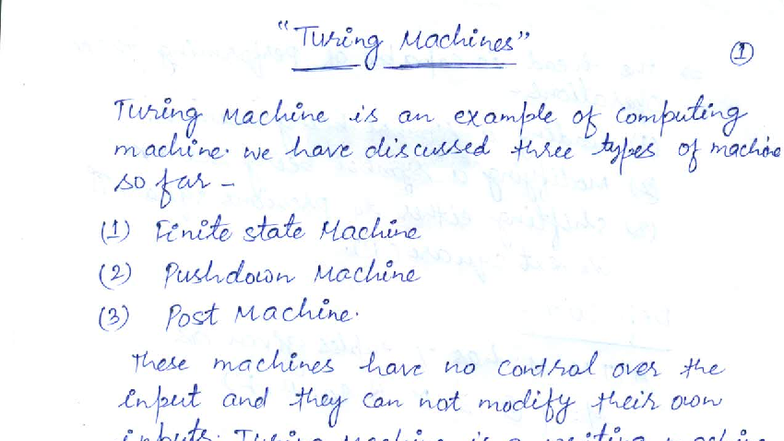 "Turing Machines"
①
Turing Machine is an example of computing
machine. we have discussed three types of machine
so far -
(1) Finite state Machine
(2) Pushdown Machine
(3) Post Machine.
These machines have no control over the
input and they can not modify their own
inputs. Turing Machine is a writing machine